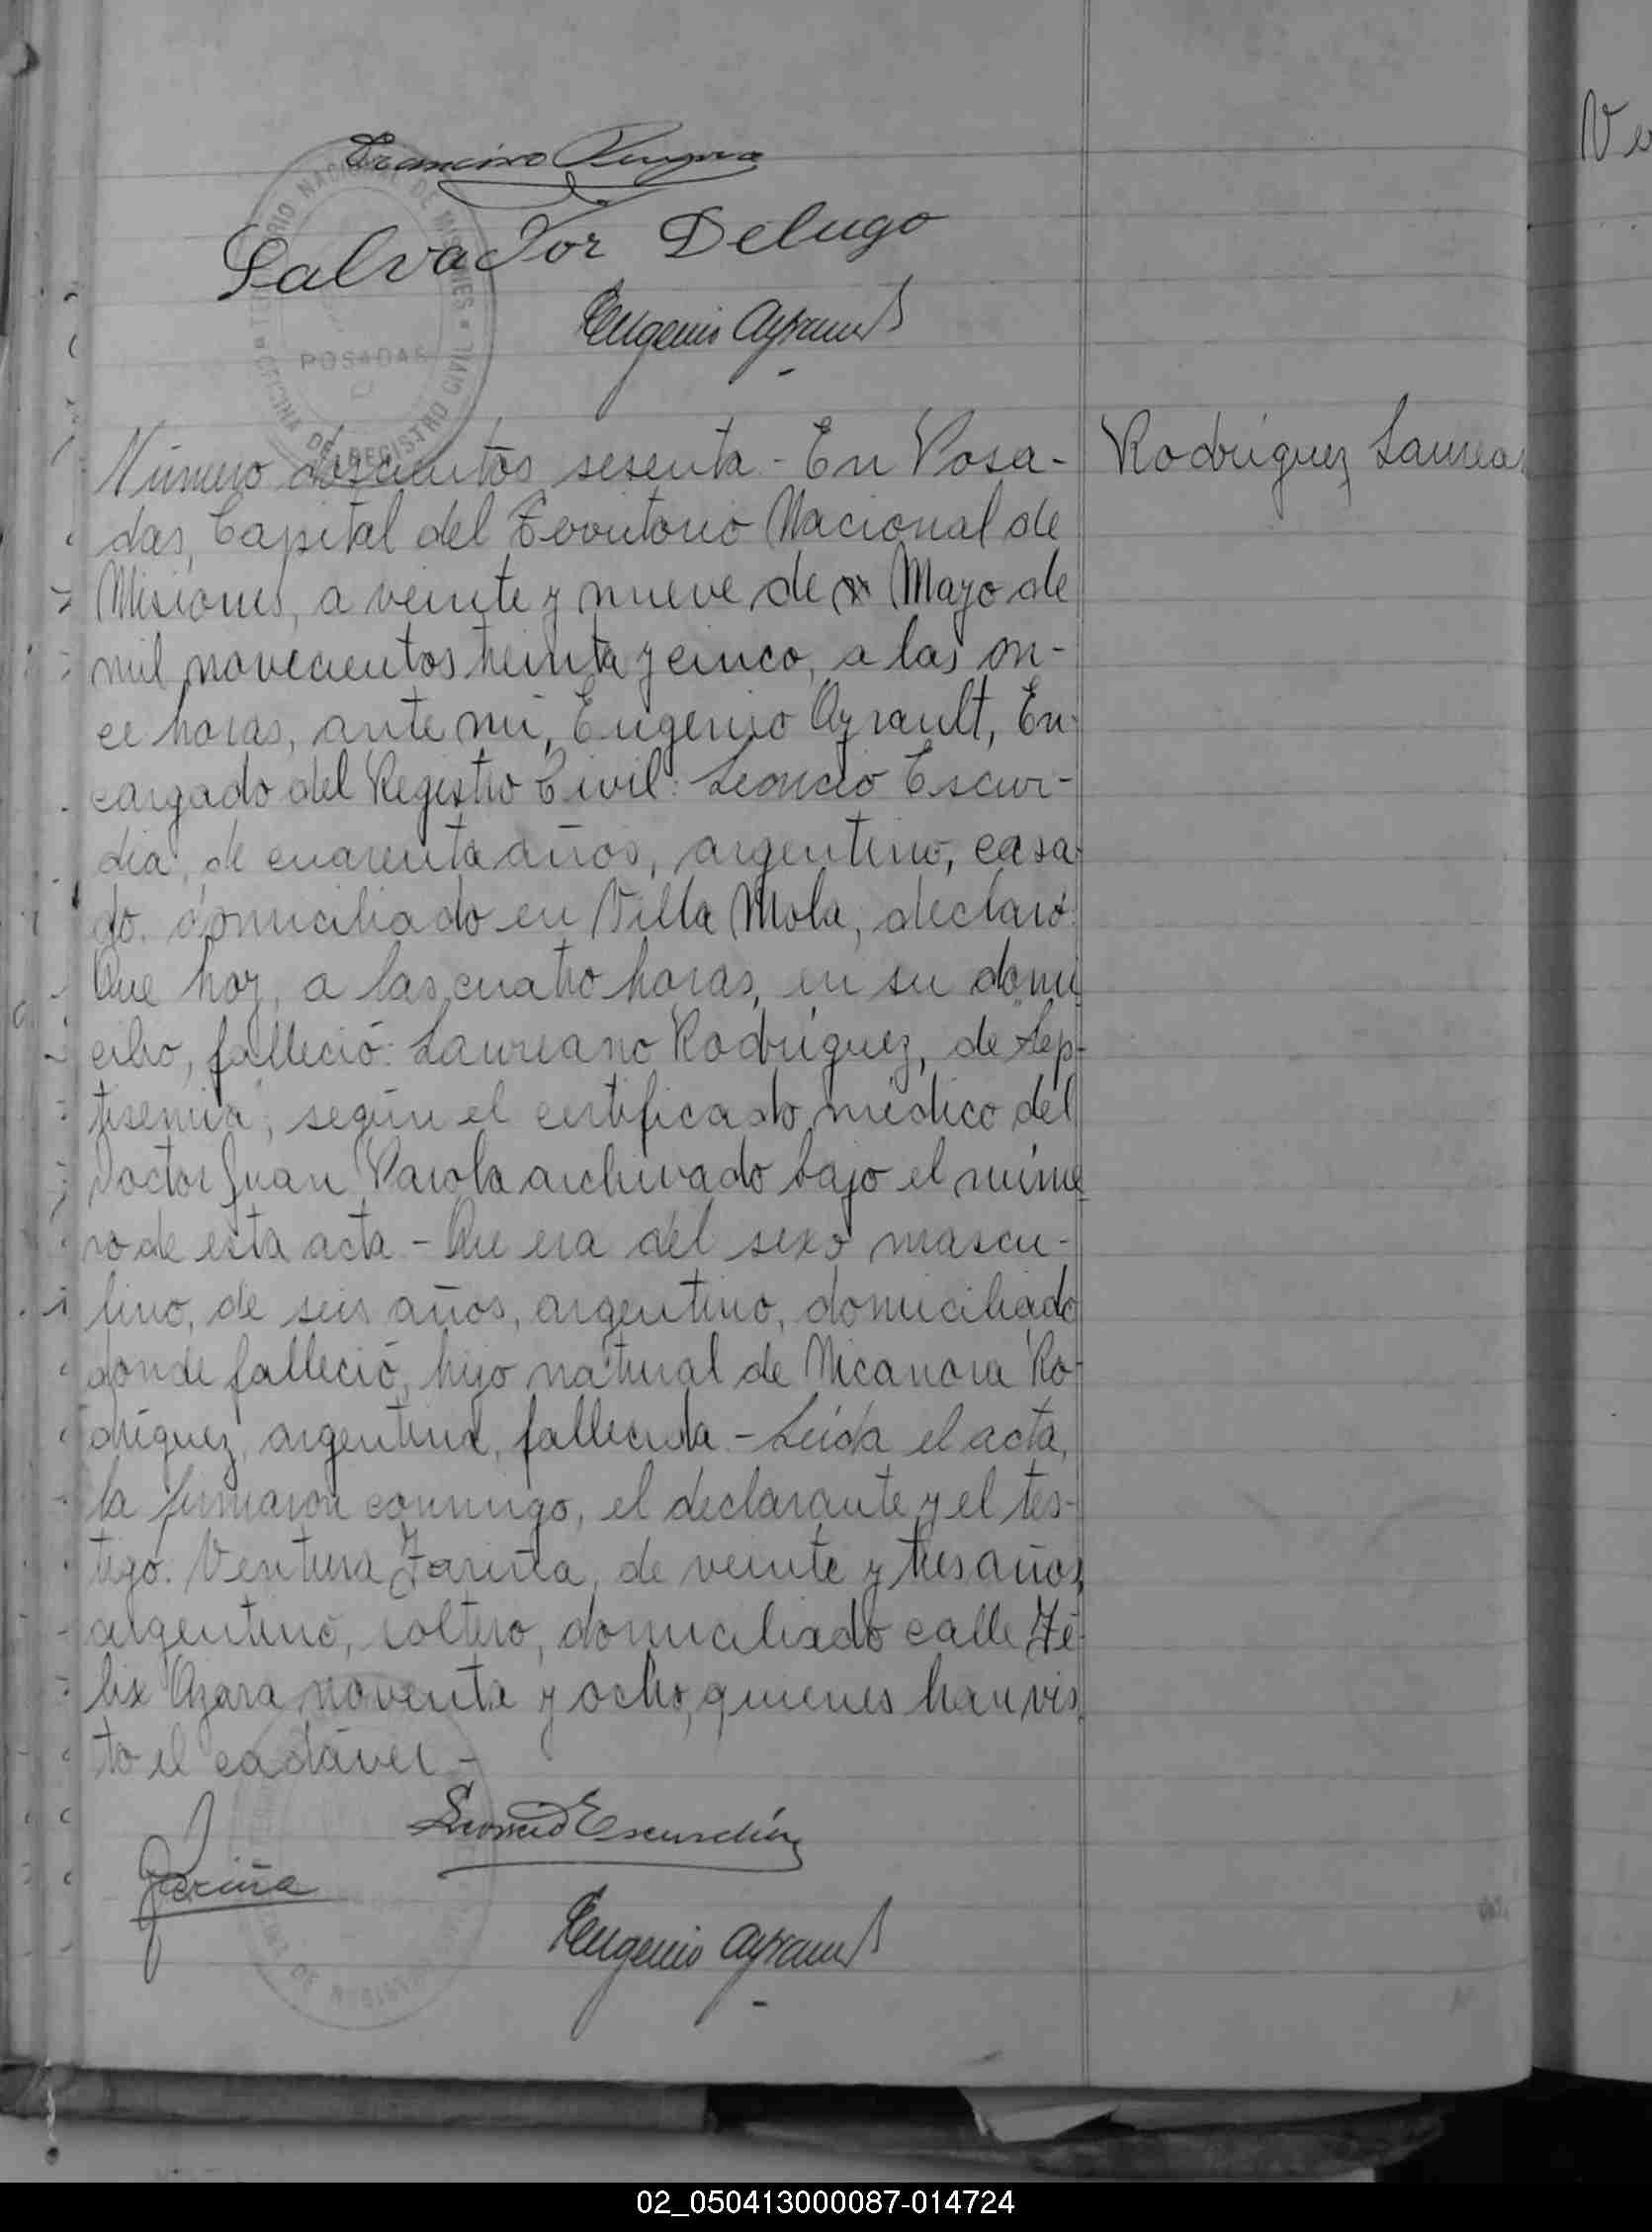 Francisco
Salvador Delugo
Eugenio Ayrault
TERRITORIO NACIONAL DE MISIONES
OFICINA DE REGISTRO CIVIL
POSADAS
Número doscientos sesenta - En Posa-
das, Capital del Territorio Nacional de
Misiones, a veinte y nueve de Mayo de
mil novecientos treinta y cinco, a las on-
ce horas, ante mí, Eugenio Ayrault, En-
cargado del Registro Civil: Leoncio Escur-
dia, de cuarenta años, argentino, casa-
do, domiciliado en Villa Mola, declaró:
Que hoy, a las cuatro horas, en su domi-
cilio, falleció: Laureano Rodríguez, de "Sep-
tisemia", según el certificado médico del
Doctor Juan Parola archivado bajo el núme-
ro de esta acta - Que era del sexo mascu-
lino, de seis años, argentino, domiciliado
donde falleció, hijo natural de Nicanora Ro-
dríguez, argentina, fallecida. - Leída el acta,
la firmaron conmigo, el declarante y el tes-
tigo: Ventura Fariña, de veinte y tres años,
argentino, soltero, domiciliado calle Fé-
lix Azara noventa y ocho, quienes han vis-
to el cadáver. -
Leoncio Escurdia
Fariña
Eugenio Ayrault
Rodríguez Laurea
Ve
02_050413000087-014724